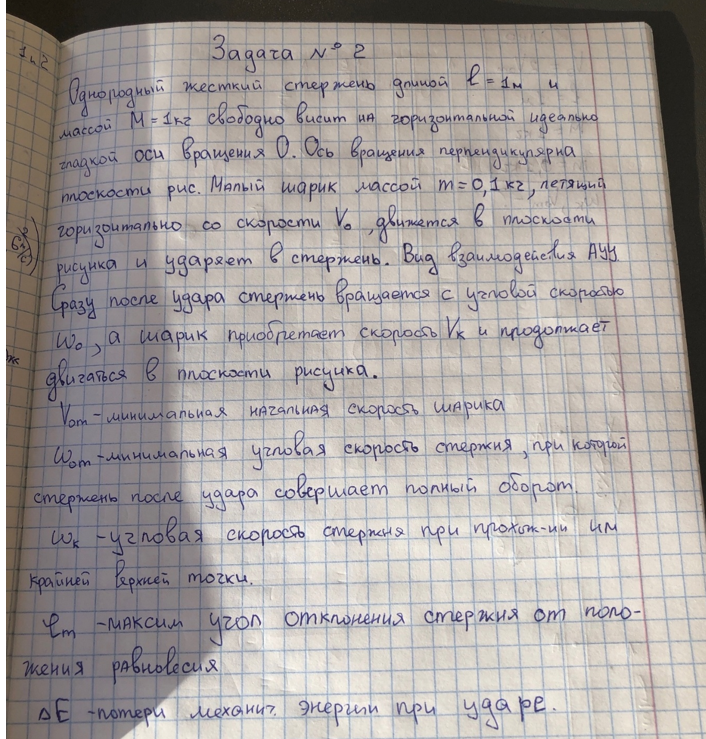 Задача № 2
Однородный жесткий стержень длиной ℓ = 1м и
массой M = 1кг свободно висит на горизонтальной идеально
гладкой оси вращения O. Ось вращения перпендикулярна
плоскости рис. Малый шарик массой m = 0,1кг, летящий
горизонтально со скорости V₀, движется в плоскости
рисунка и ударяет в стержень. Вид взаимодействия АУУ.
Сразу после удара стержень вращается с угловой скоростью
ω₀, а шарик приобретает скорость Vₖ и продолжает
двигаться в плоскости рисунка.
V₀ₘ - минимальная начальная скорость шарика
ω₀ₘ - минимальная угловая скорость стержня, при которой
стержень после удара совершает полный оборот.
ωₖ - угловая скорость стержня при прохож-нии им
крайней верхней точки.
φₘ - максим угол отклонения стержня от поло-
жения равновесия
ΔE - потери механич. энергии при ударе.